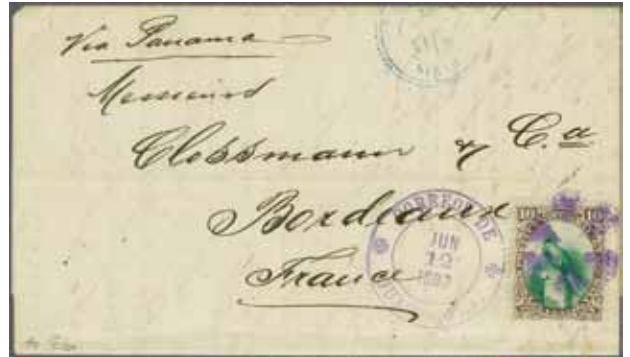 Via Panama
Messieurs
Clossmann & C.a
Bordeaux
France
CORREOS DE
JUN
12